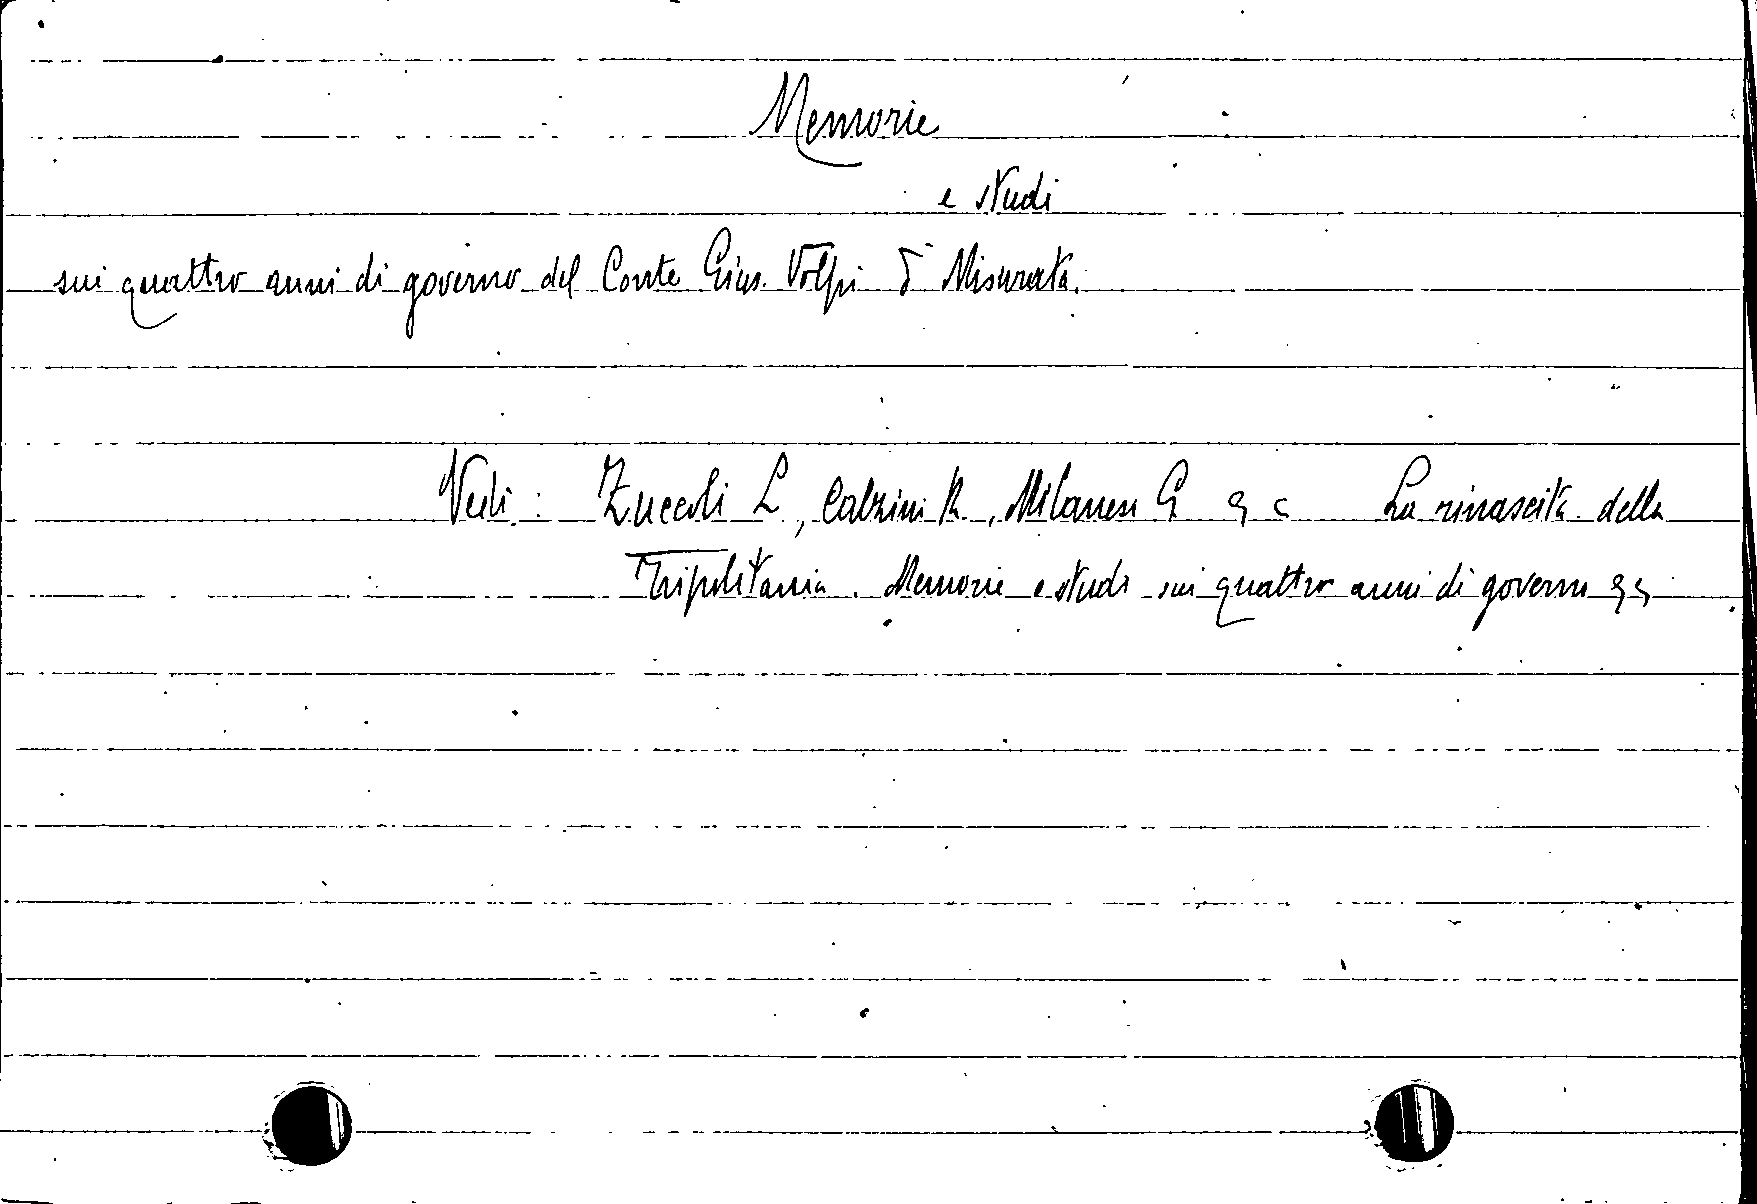 Memorie
e studi
sui quattro anni di governo del Conte Gius. Volpi d Misurata.
Vedi : Zuccoli L., Calzini R., Milanesi G La rinascita della
Tripolitania. Memorie e studi sui quattro anni di governo